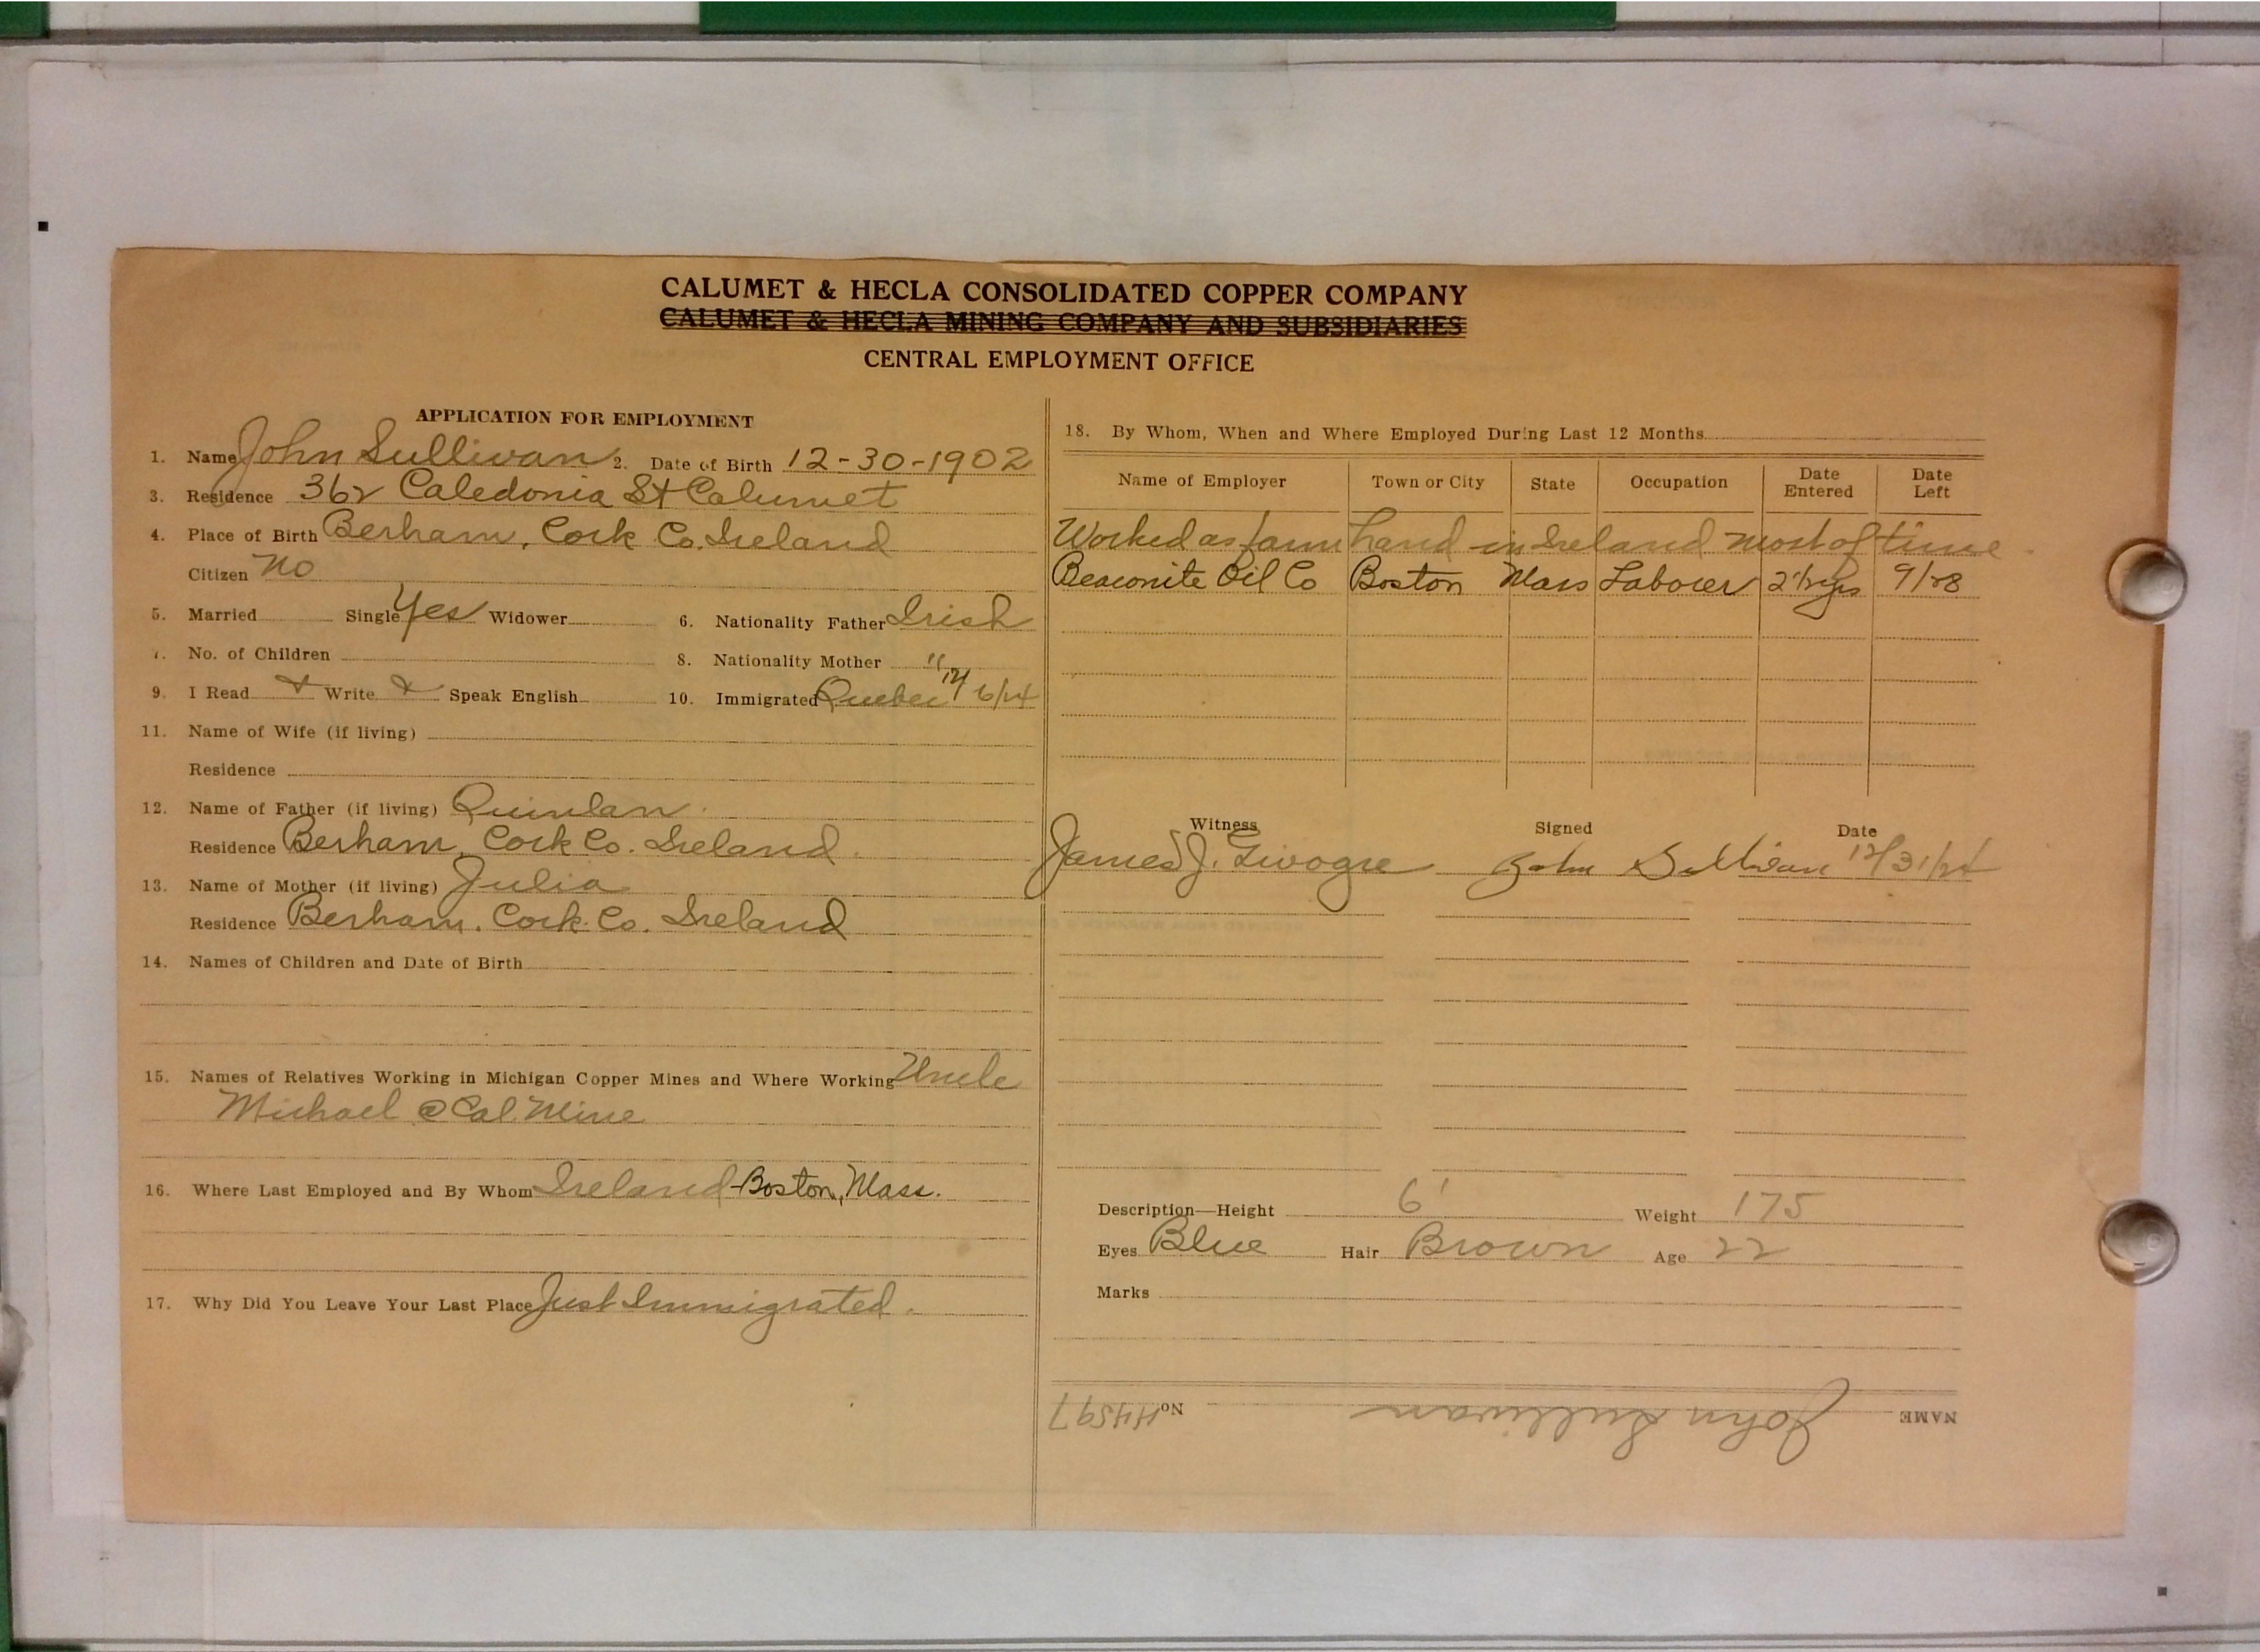 CALUMET & HECLA CONSOLIDATED COPPER COMPANY
CALUMET & HECLA MINING COMPANY AND SUBSIDIARIES
CENTRAL EMPLOYMENT OFFICE
APPLICATION FOR EMPLOYMENT
1. Name John Sullivan 2. Date of Birth 12-30-1902
3. Residence 362 Caledonia St Calumet
4. Place of Birth Berham, Cork Co. Ireland
Citizen No
5. Married Single Yes Widower 6. Nationality Father Irish
7. No. of Children 8. Nationality Mother "
9. I Read Write Speak English 10. Immigrated Quebec 6/24
11. Name of Wife (if living)
Residence
12. Name of Father (if living) Quinlan
Residence Berham, Cork Co. Ireland
13. Name of Mother (if living) Julia
Residence Berham, Cork Co. Ireland
14. Names of Children and Date of Birth
15. Names of Relatives Working in Michigan Copper Mines and Where Working Uncle
Michael @ Cal. Mine
16. Where Last Employed and By Whom Ireland-Boston, Mass.
17. Why Did You Leave Your Last Place Just Immigrated.
18. By Whom, When and Where Employed During Last 12 Months
Name of Employer Town or City State Occupation Date Entered Date Left
Worked as farm hand in Ireland most of time
Beaconite Oil Co Boston Mass Laborer 9/28
Witness Signed Date
James J. John Sullivan 12/31/24
Description—Height 6' Weight 175
Eyes Blue Hair Brown Age 22
Marks
NAME John Sullivan No H4597